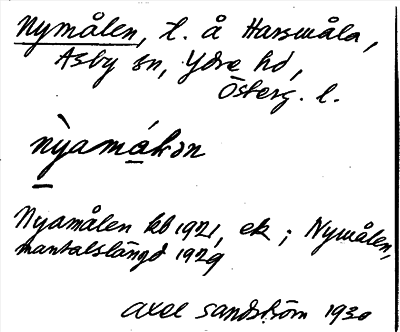 Nymålen, t. å Harsmåla,
Asby sn, Ydre hd,
Österg. l.
nỳamák̀ən
Nyamålen kb 1921, ek; Nymålen,
mantalslängd 1929
Axel Sandström 1930